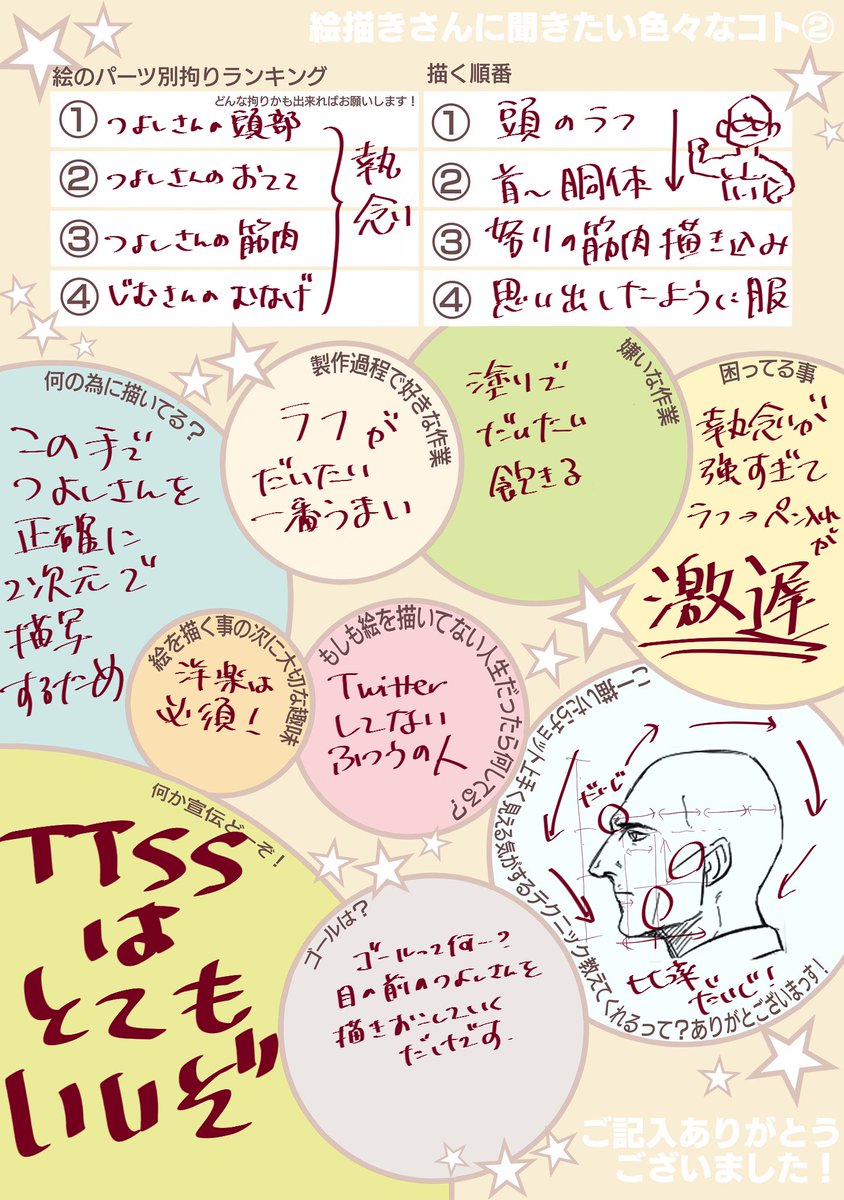 絵描きさんに聞きたい色々なコト②
絵のパーツ別拘りランキング
どんな拘りかも出来ればお願いします！
①つよしさんの頭部
②つよしさんのおてて
③つよしさんの筋肉
④じむさんのむなげ
執
念
描く順番
①頭のラフ
②首〜胴体
③怒りの筋肉描き込み
④思い出したように服
何の為に描いてる？
この手で
つよしさんを
正確に
2次元で
描写
するため
製作過程で好きな作業
ラフが
だいたい
一番うまい
嫌いな作業
塗りで
だいたい
飽きる
困ってる事
執念が
強すぎて
ラフ→ペン入れが
激遅
絵を描く事の次に大切な趣味
洋楽は
必須！
もしも絵を描いてない人生だったら何してる？
Twitter
してない
ふつうの人
こー描いたらチョット上手く見える気がするテクニック教えてくれるって？ありがとございまっす！
だいじ
比率
だいじ！
何か宣伝どーぞ！
TTSS
は
とても
いいぞ
ゴールは？
ゴールって何…？
目の前のつよしさんを
描きおこしていく
だけです.
ご記入ありがとう
ございました！